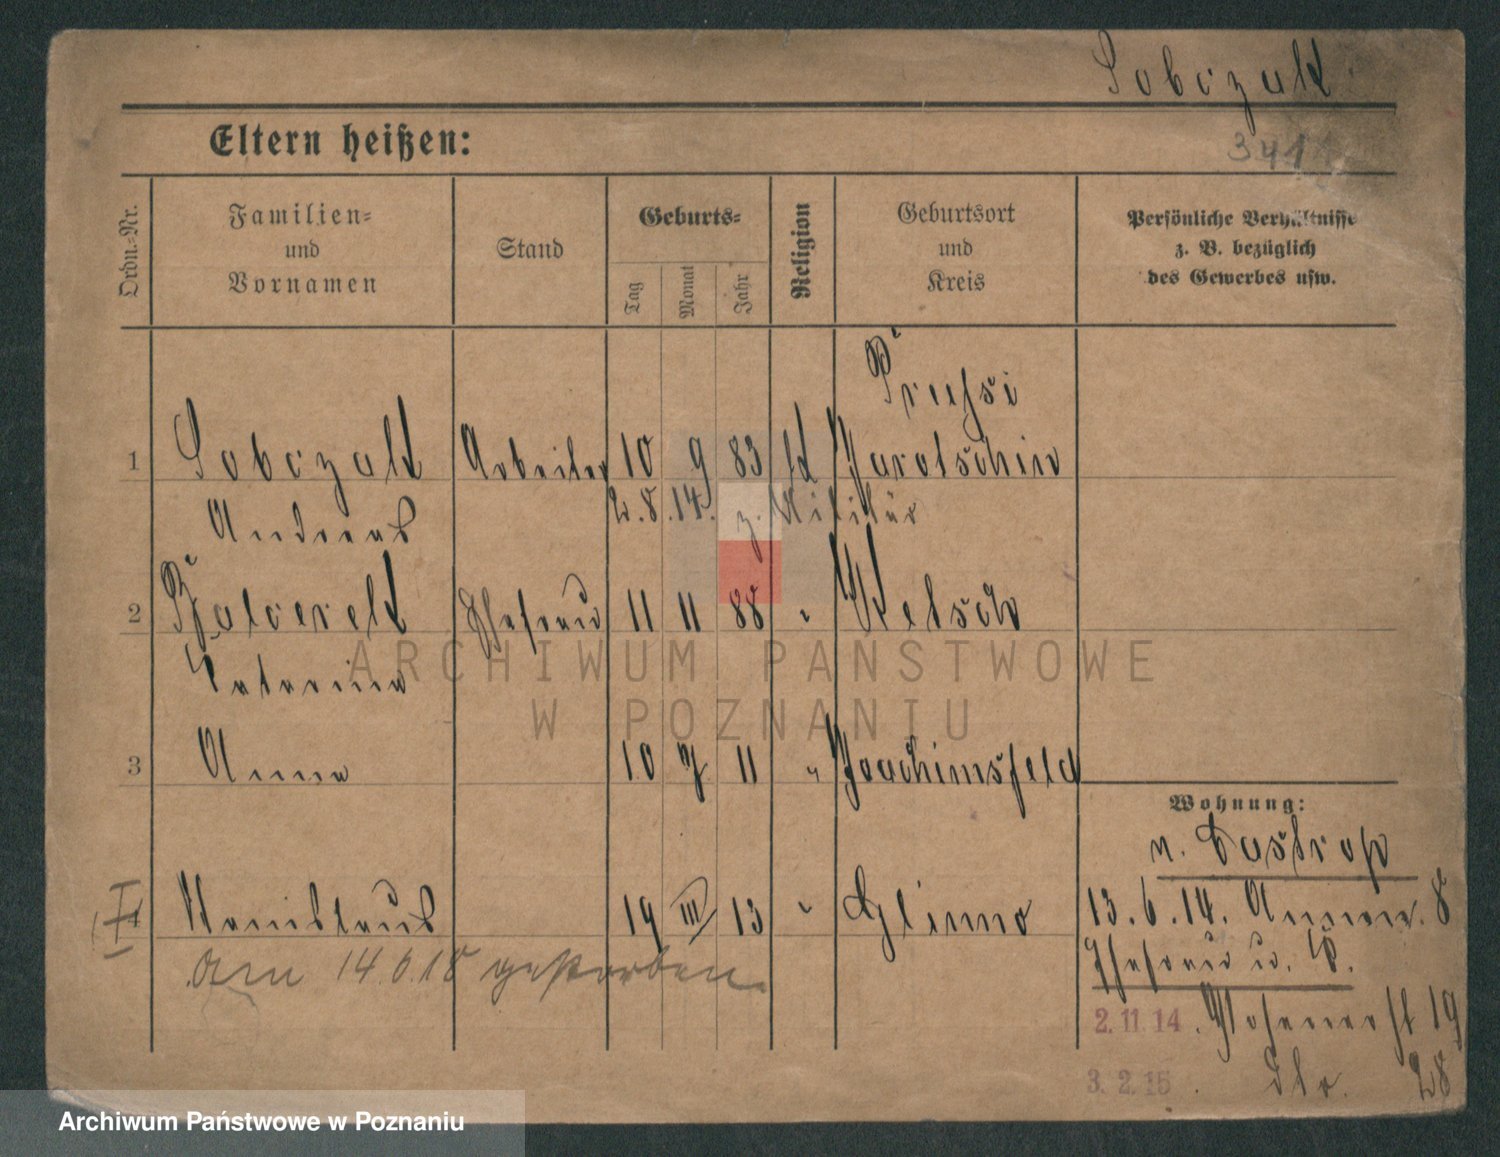 Sobczak
3411
Eltern heißen:
Ordn.-Nr.
Familien-
und
Vornamen
Stand
Geburts-
Tag
Monat
Jahr
Religion
Geburtsort
und
Kreis
Persönliche Verhältnisse
z. B. bezüglich
des Gewerbes usw.
1 Sobczak Arbeiter 10 9 83 k Jarotschin
Andreas 2.8.14. z. Militär
2 Ehefrau 11 11 88 "
Katarina
3 Anna 10 7 11 " Joachimsfeld
Wohnung:
n.
4 Stanislaus 19 III 13 " Glinno
13.6.14. 8
Am 14.6.15 gestorben.
Ehefrau u.
2.11.14. 19
3.2.15. 28
ARCHIWUM PAŃSTWOWE
W POZNANIU
Archiwum Państwowe w Poznaniu